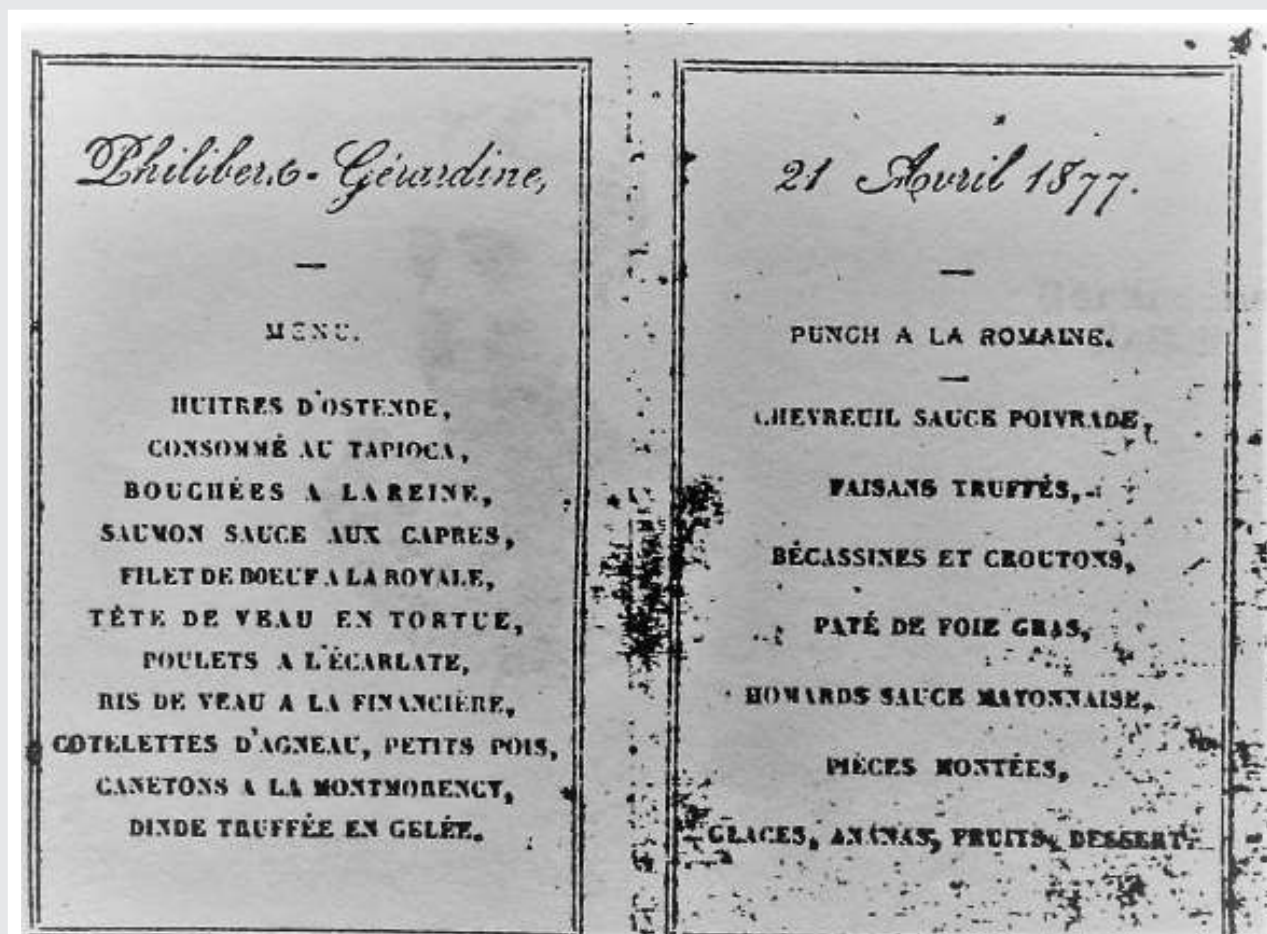 Philibert-Gérardine,
MENU.
HUITRES D'OSTENDE,
CONSOMMÉ AU TAPIOCA,
BOUCHÉES A LA REINE,
SAUMON SAUCE AUX CAPRES,
FILET DE BOEUF A LA ROYALE,
TÊTE DE VEAU EN TORTUE,
POULETS A L'ÉCARLATE,
RIS DE VEAU A LA FINANCIÈRE,
COTELETTES D'AGNEAU, PETITS POIS,
CANETONS A LA MONTMORENCY,
DINDE TRUFFÉE EN GELÉE.
21 Avril 1877.
PUNCH A LA ROMAINE.
CHEVREUIL SAUCE POIVRADE,
FAISANS TRUFFÉS,
BÉCASSINES ET CROUTONS,
PATÉ DE FOIE GRAS,
HOMARDS SAUCE MAYONNAISE,
PIÈCES MONTÉES,
GLACES, ANANAS, FRUITS, DESSERT.